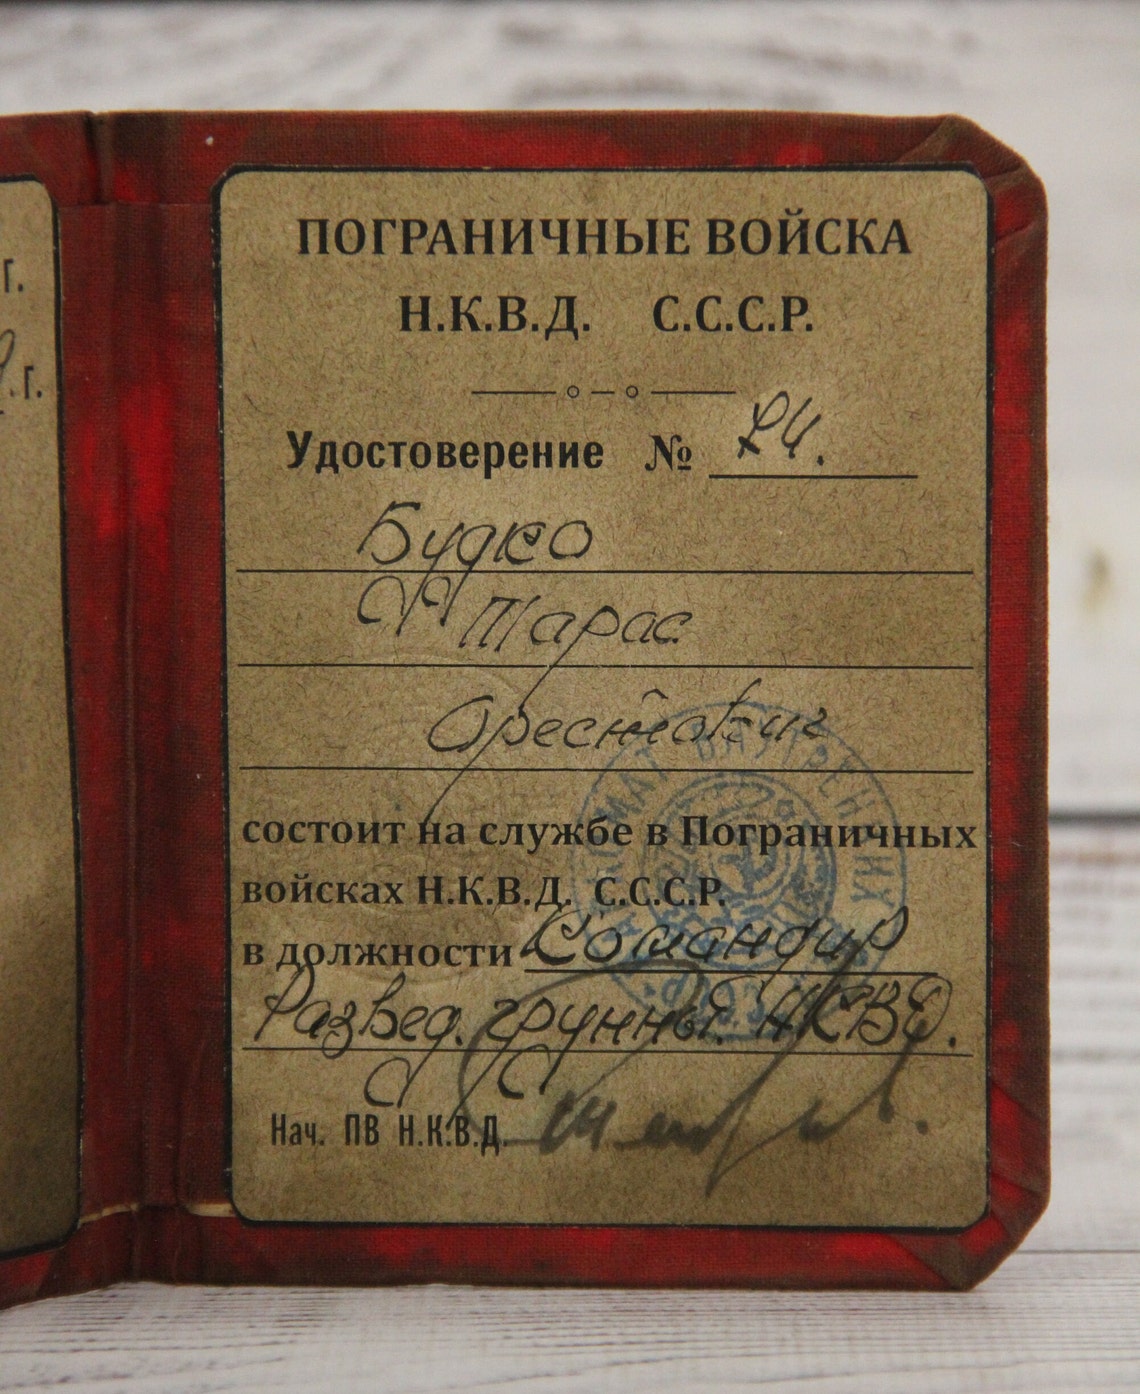 г.
г.
ПОГРАНИЧНЫЕ ВОЙСКА
Н.К.В.Д. С.С.С.Р.
Удостоверение №
Будко
Тарас
Орестович
состоит на службе в Пограничных
войсках Н.К.В.Д. С.С.С.Р.
в должности Командир
Развед. группы НКВД.
Нач. ПВ Н.К.В.Д.